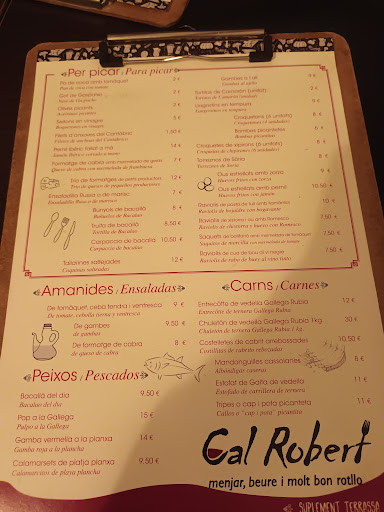 Per picar / Para picar
Pa de coca amb tomàquet 2 €
Pan de coca con tomate
Got de Gaspatxo
Vaso de Gazpacho
Olives
Seitons en vinagre
Boquerones en vinagre
Filets d'anxoves del Cantàbric 1,50 €
Filetes de anchoas del Cantábrico
Pernil ibèric tallat a mà 14 €
Jamón ibérico cortado a mano
Formatge de cabra amb melmelada de gerds
Queso de cabra con mermelada de frambuesa
Trio de formatges de petits productors 12 €
Trio de quesos de pequeños productores
Ensaladilla Russa o de marisc 7 €
Ensaladilla Rusa o de marisco
Bunyols de bacallà 8 €
Buñuelos de Bacalao
Truita de bacallà 8,50 €
Tortilla de Bacalao
Carpaccio de bacallà 10,50 €
Carpaccio de Bacalao
Tallarines saltejades 12 €
Coquinas salteadas
Gambes a l'all 9 €
Gambas al ajillo
Llagostins en tempura
Langostinos en tempura
Croqueton (6 unitats)
Croquetones (6 unidades)
Bombes picantetes
Bombas picantitas
Croquetes de sípia (6 unitats)
Torreznos de Sòria
Torreznos de Soria
Ous estrellats amb
Huevos fritos con
Ous estrellats amb pernil 10,50 €
Huevos fritos con jamón
Raviolis
Raviolis de bacallà amb Romesco
7,50 €
Raviolis de cua de bou al vi negre 7,50 €
Raviolis de rabo de buey al vino tinto
Amanides / Ensaladas
De tomàquet, ceba tendra i ventresca 9 €
De tomate, cebolla tierna y ventresca
De gambes 9.50 €
de gambas
De formatge de cabra 8 €
de queso de cabra
Peixos / Pescados
Bacallà del dia 9.50 €
Bacalao del día
Pop a la Gallega 15 €
Pulpo a la Gallega
Gamba vermella a la planxa 14 €
Gamba roja a la plancha
Calamarsets de platja planxa 9.50 €
Calamarcitos de playa plancha
Carns / Carnes
Entrecôtte de vedella Gallega Rubia 12 €
Entrecôtte de ternera Gallega Rubia
Chuletón de vedella Gallega Rubia 1kg 30 €
Chuletón de ternera Gallega Rubia 1 kg
Costelletes de cabrit arrebossades 10.50 €
Costillitas de cabrito rebozadas
Mandonguilles cassolanes 8 €
Albóndigas caseras
Estofat de Galta de vedella 11 €
Estofado de carrillera de ternera
Tripes o cap i pota picantets
Callos o "cap i pota" picantitos
Cal Robert
menjar, beure i molt bon rotllo
SUPLEMENT TERRASSA